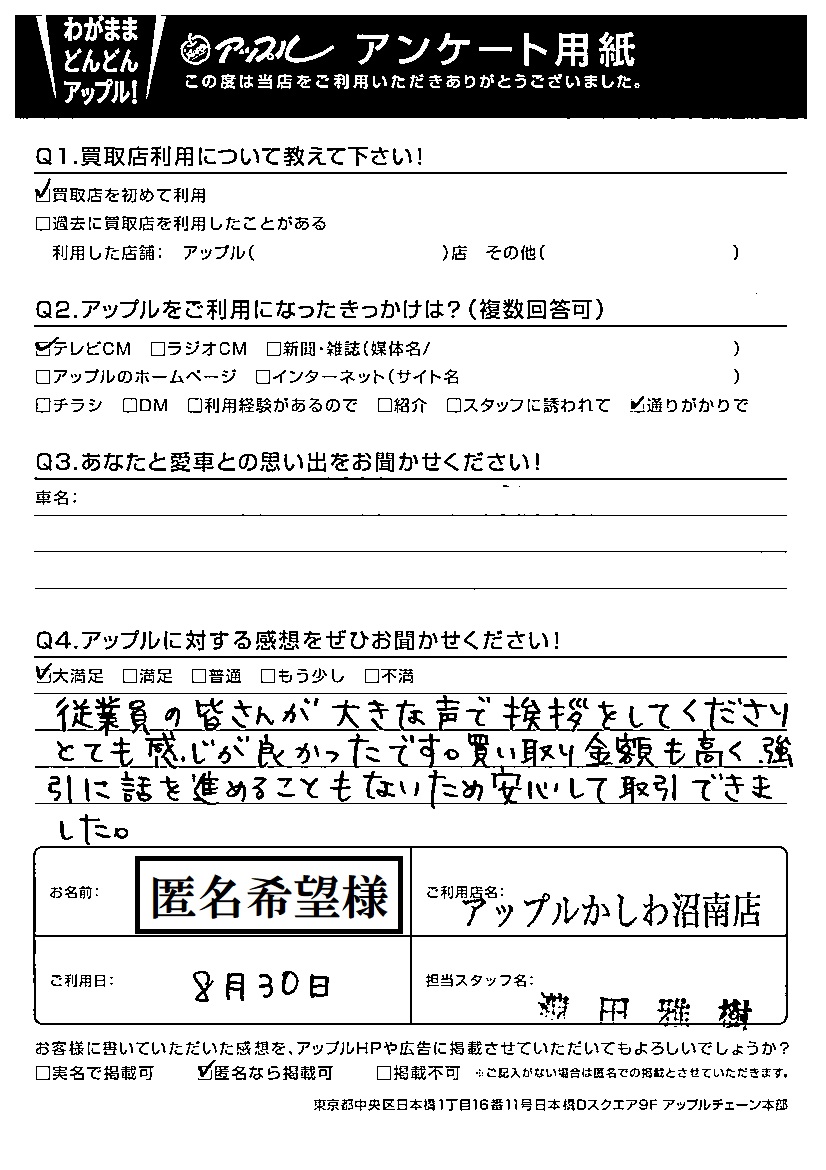 わがまま
どんどん
アップル!
アップル アンケート用紙
この度は当店をご利用いただきありがとうございました。
Q1.買取店利用について教えて下さい!
☑買取店を初めて利用
□過去に買取店を利用したことがある
利用した店舗: アップル( )店 その他( )
Q2.アップルをご利用になったきっかけは?(複数回答可)
☑テレビCM □ラジオCM □新聞・雑誌(媒体名/ )
□アップルのホームページ □インターネット(サイト名 )
□チラシ □DM □利用経験があるので □紹介 □スタッフに誘われて ☑通りがかりで
Q3.あなたと愛車との思い出をお聞かせください!
車名:
Q4.アップルに対する感想をぜひお聞かせください!
☑大満足 □満足 □普通 □もう少し □不満
従業員の皆さんが大きな声で挨拶をしてくださり
とても感じが良かったです。買い取り金額も高く強
引に話を進めることもないため安心して取引できま
した。
お名前: 匿名希望様
ご利用店名: アップルかしわ沼南店
ご利用日: 8月30日
担当スタッフ名: 田 雅 樹
お客様に書いていただいた感想を、アップルHPや広告に掲載させていただいてもよろしいでしょうか?
□実名で掲載可 ☑匿名なら掲載可 □掲載不可 ※ご記入がない場合は匿名での掲載とさせていただきます。
東京都中央区日本橋1丁目16番11号日本橋Dスクエア9F アップルチェーン本部